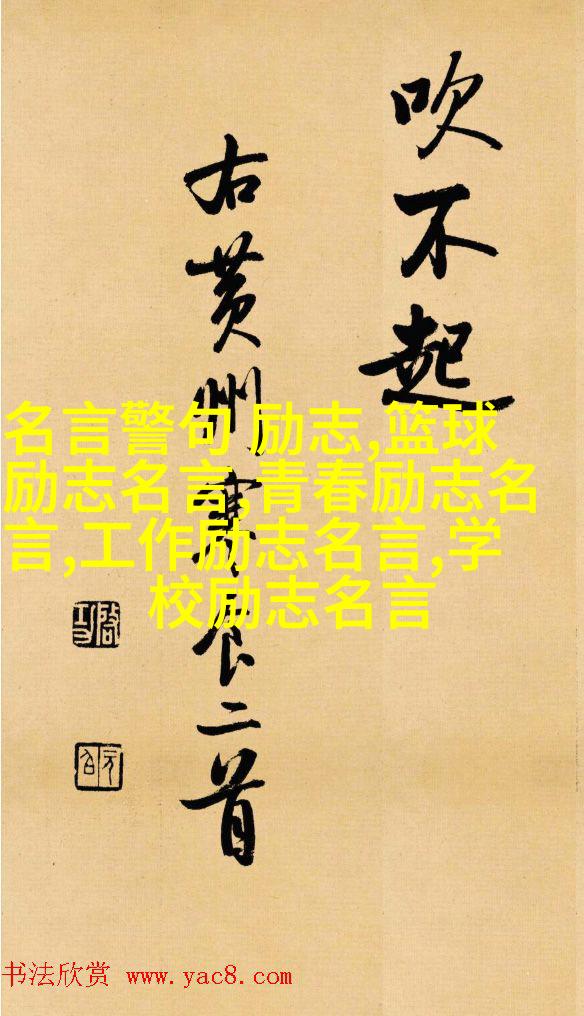 吹不起
右黄州寒食二首
啟功
元白
名言警句 励志,篮球
励志名言,青春励志名
言,工作励志名言,学
校励志名言
书法欣赏 www.yac8.com